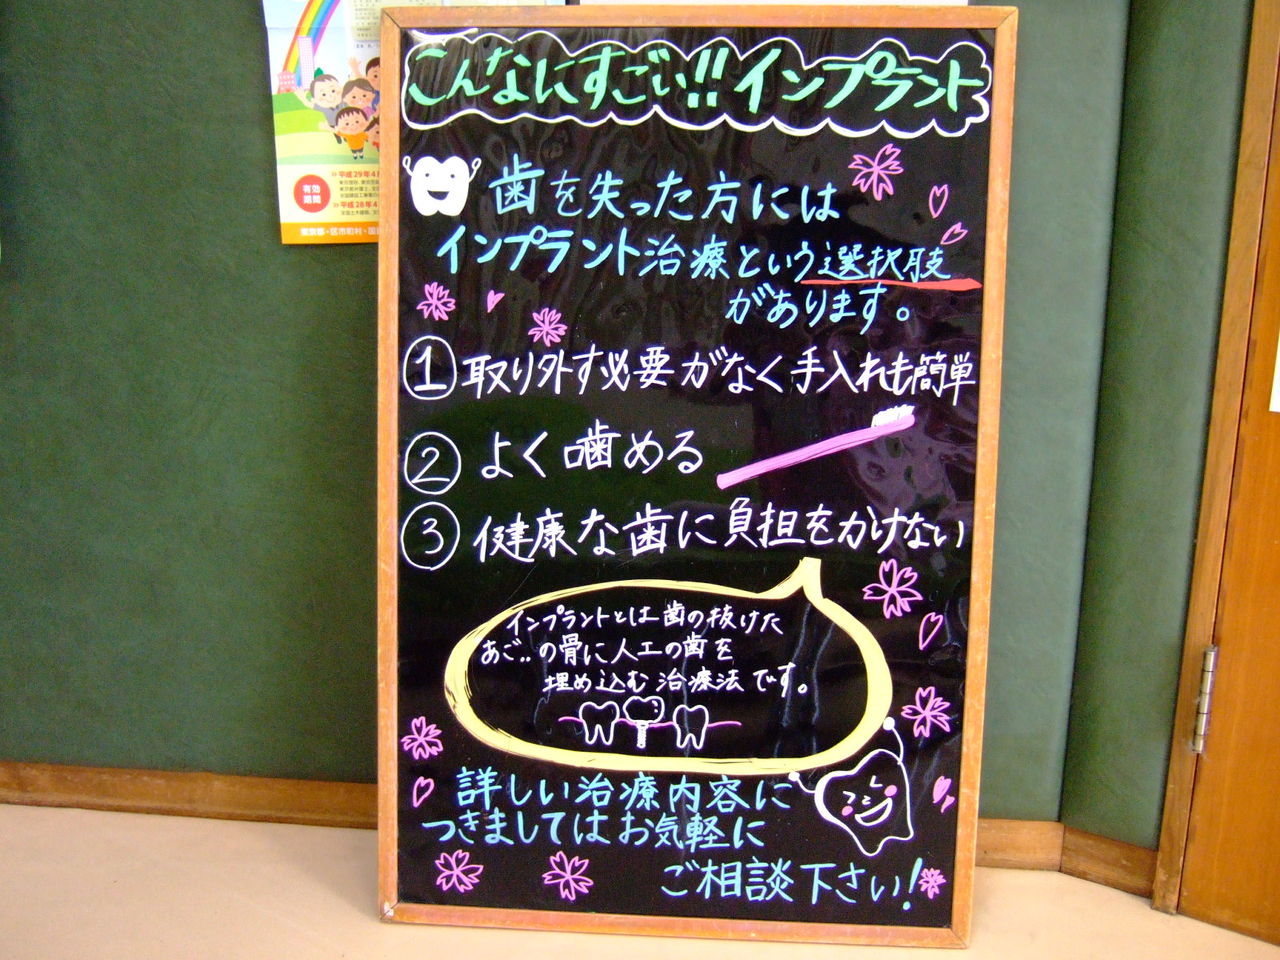 有効
期間
東京都・区市町村・国
こんなにすごい!!インプラント
歯を失った方には
インプラント治療という選択肢
があります。
① 取り外す必要がなく手入れも簡単
② よく噛める
③ 健康な歯に負担をかけない
インプラントとは歯の抜けた
あご‥の骨に人工の歯を
埋め込む治療法です。
詳しい治療内容に
つきましてはお気軽に
ご相談下さい!